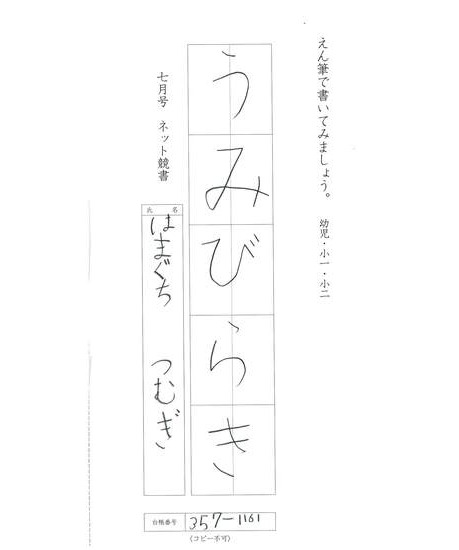 えん筆で書いてみましょう。　幼児・小一・小二
うみびらき
七月号　ネット競書
氏名
はまぐち　つむぎ
台帳番号 357-1161
(コピー不可)